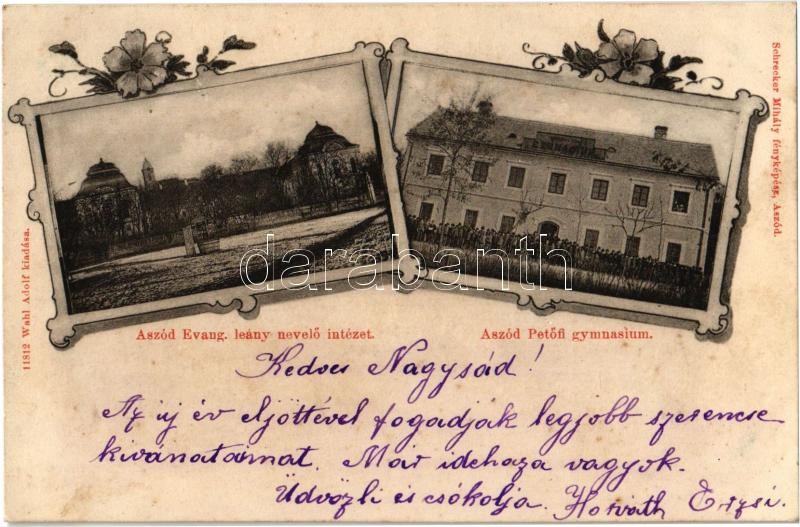 11812 Wahl Adolf kiadása.
Schrecker Mihály fényképész, Aszód.
darabanth
Aszód Evang. leány nevelő intézet.
Aszód Petőfi gymnasium.
Kedves Nagysád!
Az új év eljöttével fogadják legjobb szerencse
kivánataimat. Mar idehaza vagyok.
Üdvözli és csókolja Horváth Erzsi.